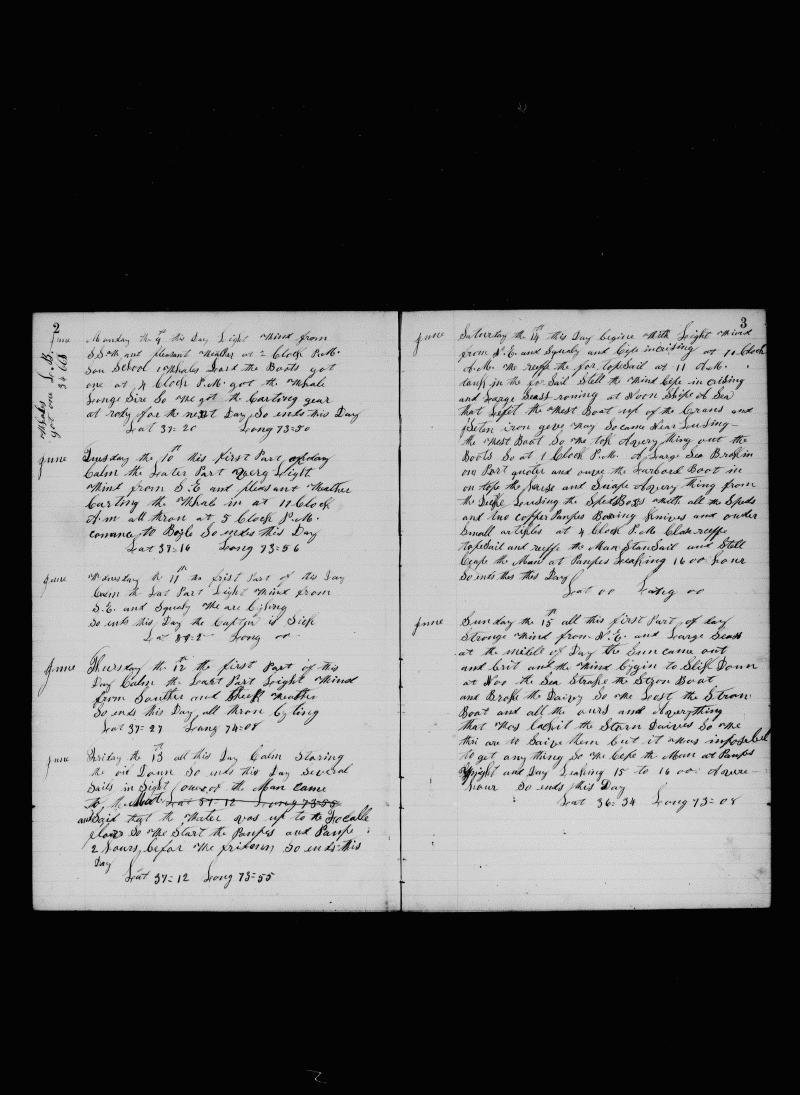 2
June Monday the 9th this Day Light Wind from
S S W and pleasant Weather at 2 Clock P.M.
Saw School Whales Lord the Boats got
one at 4 Clock P.M. got the Whale
Longe Sire So We got the Curting gear
at redy for the next Day So ends this Day
Lat 37=20 Long 73=50
Whales
got one S.B.
34
June Tuesday the 10th this First Part of day
Calm the Later Part Very Light
Wind from S.E. and pleasant Weather
Curting the Whale in at 11 Clock
A.m all thron at 5 Clock P.M.
comance to Boyle So ends this Day
Lat 37=16 Long 73=56
June Wensday the 11th the frist Part of this Day
Calm the Lat Part Light Wind from
S.E. and Squaly We are
So ends this Day the Captin is Sick
Long 00
June Thursday the 12th the first Part of this
Day Calm the Leart Part Light Wind
from Souther and thick Weather
So ends this Day all thron
Lat 37=27 Long 74=08
June Friday the 13th all this Day Calm Staring
the oil Down So ends this Day Several
Sails in Sight one of the Man came
to the Mate Lat 37=12 Long 73=55
and Said that the Water was up to the
floars So We Start the Pumpes and Pumpe
2 hours befor We So ends this
Day
Lat 37=12 Long 73=55
3
June Saturday the 14th this Day Begine With Light Wind
from N.E. and Squaly and Cepe incrising at 10 Clock
A.M. We reffe the for topSail at 11 A.M.
tank in the for Sail Still the Wind Cepe in crising
and Large Seas roning at Noon Ships A Sea
that Lefet the West Boat up of the Crans and
iron gives Way So came Near Lusing
the West Boat So We tok Avery thing out the
Boots So at 1 Clock P.M. A Large Sea Brok in
our Port quoter and ouve the Larbord Boat in
on tope the house and Swape Avery thing from
the Lusing the SpedBoxs With all the Speds
and two copper Pumpes Boaing Knives and outher
Small articles at 4 Clock P.M. Close reffe
topSail and reffe the Man StanSail and Still
Ceepe the Man at Pumpes Leaking 1600 hour
So ends this this Day
Lat 00 Long 00
June Sunday the 15th all this First Part of day
Stronge Wind from N.E. and Large Seas
at the midile of Day the Sun came out
and brit and the Wind Bigin to Slife Down
at Noo the Sea Strake the Stron Boat
and Broke the Daivey So We Lost the Stron
Boat and all the ours and Averything
that Was in the Starn Daives So We
thri are to Saive them but it was imposibel
to get any thing So We Cepe the Man at Pumpes
Night and Day Leaking 15 to 1600 Avere
hour So ends this Day
Lat 36=34 Long 73=08